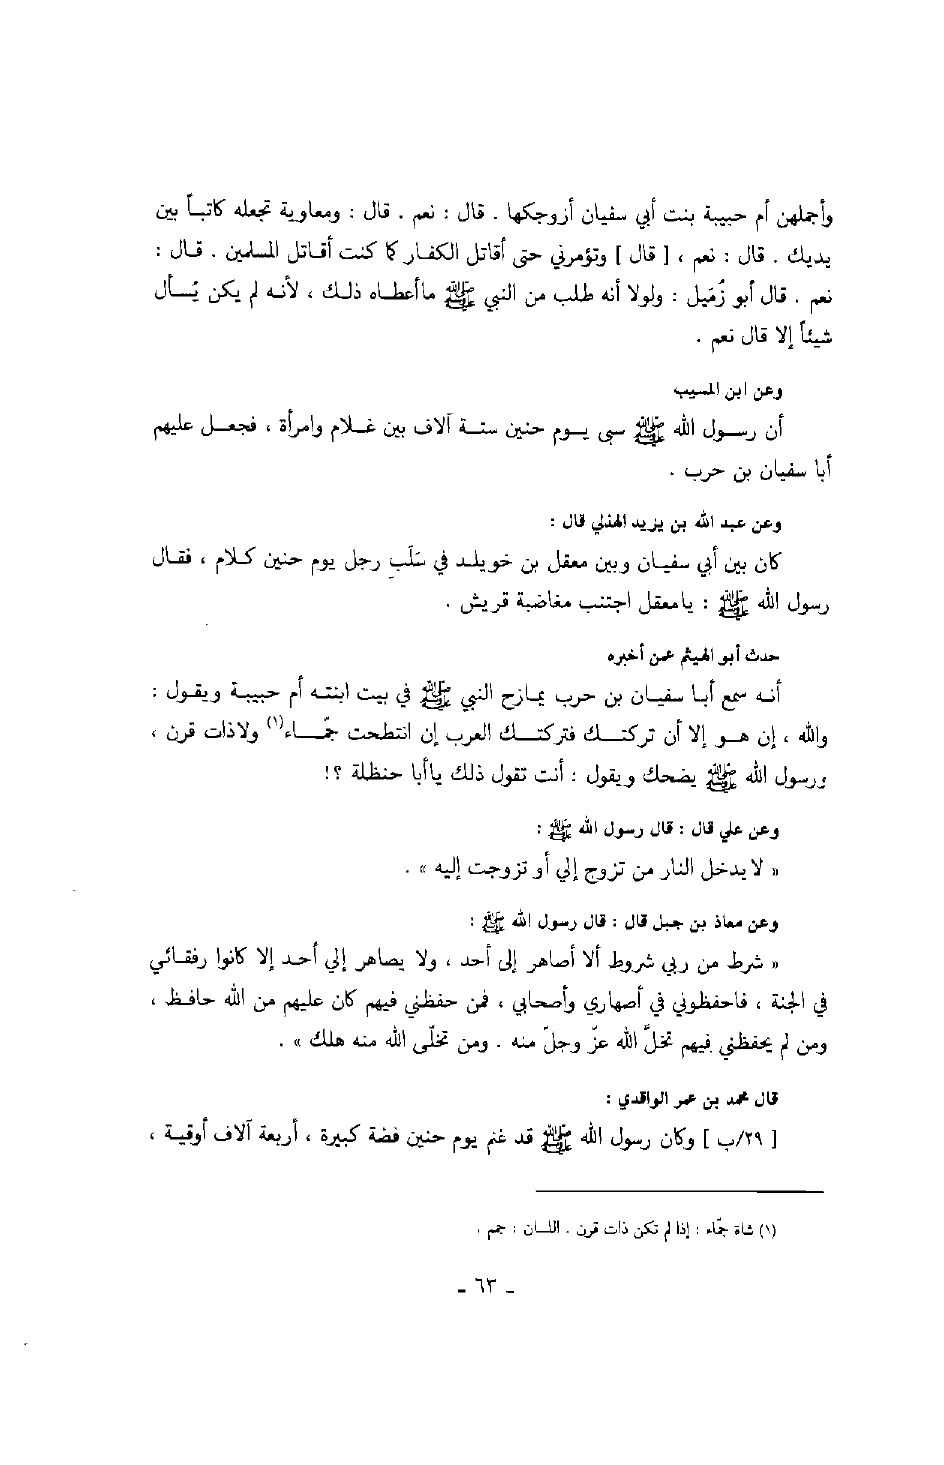 وأجملهن أم حبيبة بنت أبي سفيان أزوجكها . قال : نعم . قال : ومعاوية تجعله كاتبـاً بين
يديك . قال : نعم ، [ قال ] وتؤمرني حتى أقاتل الكفـار كما كنت أقـاتل المسلمين . قـال :
نعم . قال أبو زُمَيل : ولولا أنه طلب من النبي ﷺ ماأعطـاه ذلـك ، لأنـه لم يكن يُسـأل
شيئاً إلا قال نعم .
وعن ابن المسيب
أن رسـول الله ﷺ سبى يـوم حنين ستـة آلاف بين غـلام وامرأة ، فجعـل عليهم
أبا سفيان بن حرب .
وعن عبد الله بن يزيد الهذلي قال :
كان بين أبي سفيـان وبين معقل بن خويلـد في سَلَبِ رجل يوم حنين كـلام ، فقـال
رسول الله ﷺ : يامعقل اجتنب مغاضبة قريش .
حدث أبو الهيثم عمن أخبره
أنـه سمع أبـا سفيـان بن حرب يمازح النبي ﷺ في بيت ابنتـه أم حبيبة ويقول :
والله ، إن هـو إلا أن تركتـك فتركتـك العرب إن انتطحت جمّـاء(١) ولاذات قرن ،
ورسول الله ﷺ يضحك ويقول : أنت تقول ذلك ياأبا حنظلة ؟!
وعن علي قال : قال رسول الله ﷺ :
« لا يدخل النار من تزوج إلي أو تزوجت إليه » .
وعن معاذ بن جبل قال : قال رسول الله ﷺ :
« شرط من ربي شروط ألا أصاهر إلى أحد ، ولا يصاهر إلي أحـد إلا كانوا رفقـائي
في الجنة ، فاحفظوني في أصهاري وأصحابي ، فمن حفظني فيهم كان عليهم من الله حافـظ ،
ومن لم يحفظني فيهم تخلَّ الله عزّ وجلّ منه . ومن تخلّى الله منه هلك » .
قال محمد بن عمر الواقدي :
[ ٢٩/ب ] وكان رسول الله ﷺ قد غنم يوم حنين فضة كبيرة ، أربعة آلاف أوقيـة ،
(١) شاة جمّاء : إذا لم تكن ذات قرن . اللسان : جمم .
ـ ٦٣ ـ